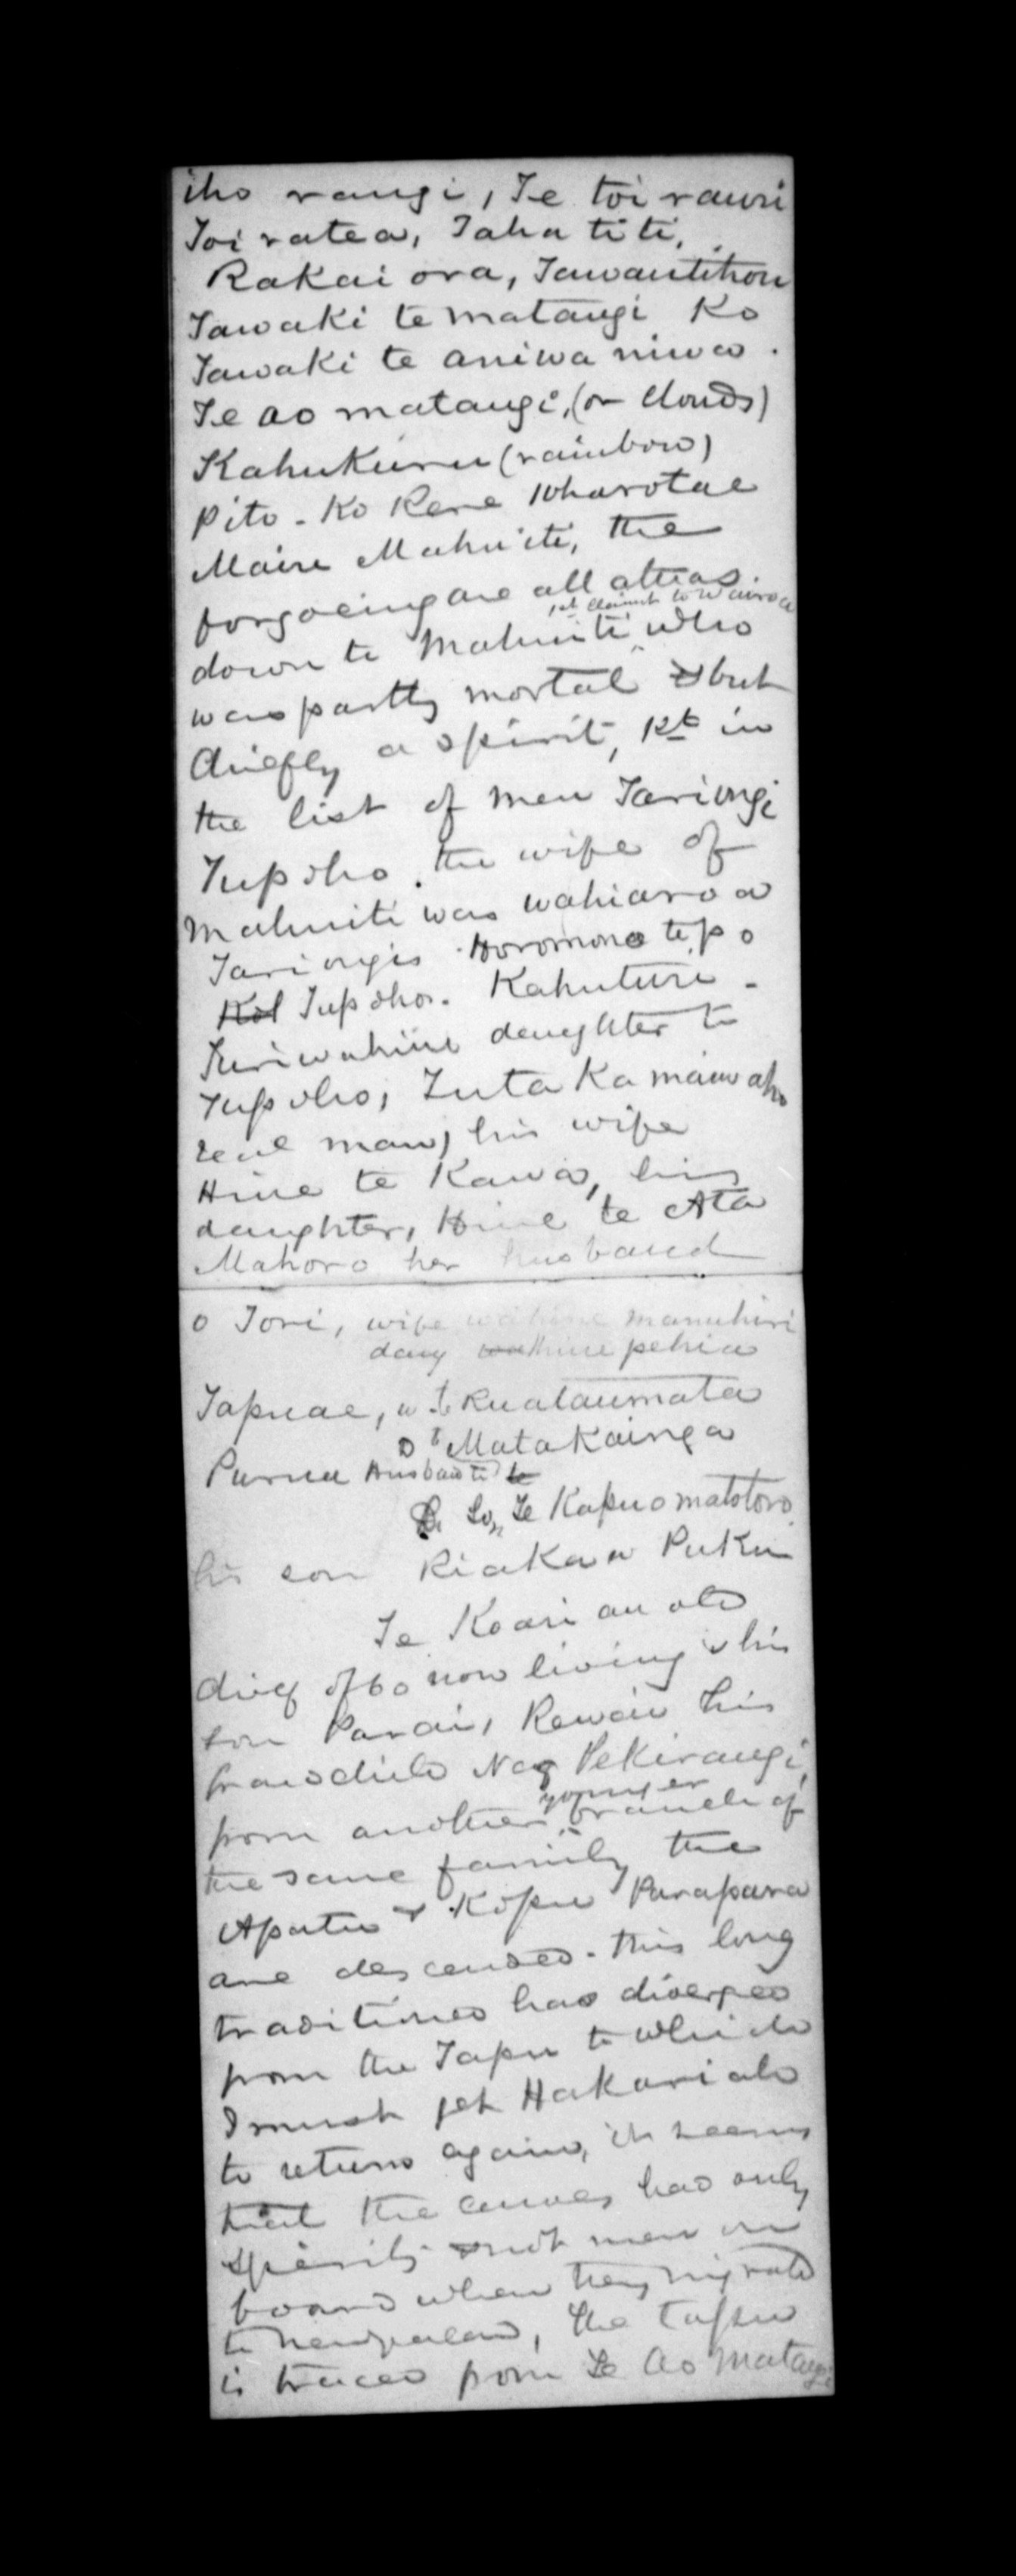 iho rangi, Te toi rauri
Toi ratea, Taha titi,
Rakai ora, Tawautitihou
Tawaki te matangi Ko
Tawaki te aniwa niwa.
Te ao matangi, (or Clouds)
Kahukuru (rainbow)
Pito - Ko Rere wharotae
Maire Mahuiti, the
forgoeing are all atuas.
1st claimt to Wairoa
down to Mahuiti who
was partly mortal but
chiefly a spirit, 1st in
the list of men Tariongi
Tupoho. the wife of
Mahuiti was wahiaroa
Tariongis Horomona te po
Kol Tupohos. Kahuturi -
Turiwahine daughter to
Tupoho, Tutakamaiwaho
real man, his wife
Hine te Kawa, his
daughter, Hine te Ata
Mahoro her husband
o Tori, wife wahine manuhiri
daug wathine pehia
Tapuae, w to Ruataumata
D to Matakainga
Purua Husband to te
Son Te Kapuomatotoro
his son Riakaw Puku
Te Koari an old
chief of 60 now living & his
son Parai, Rewai his
grandchild Nag Pekirangi,
younger
from another branch of
the same family the
Apatu & Kopu Parapara
are descended. this long
traditions has diverged
from the Tapu to which
I must get Hakariah
to return again, it seems
that the canoes had only
spirits not men on
board when they migrated
to New Zealand, the tapu
is traced from Te Ao Matangi